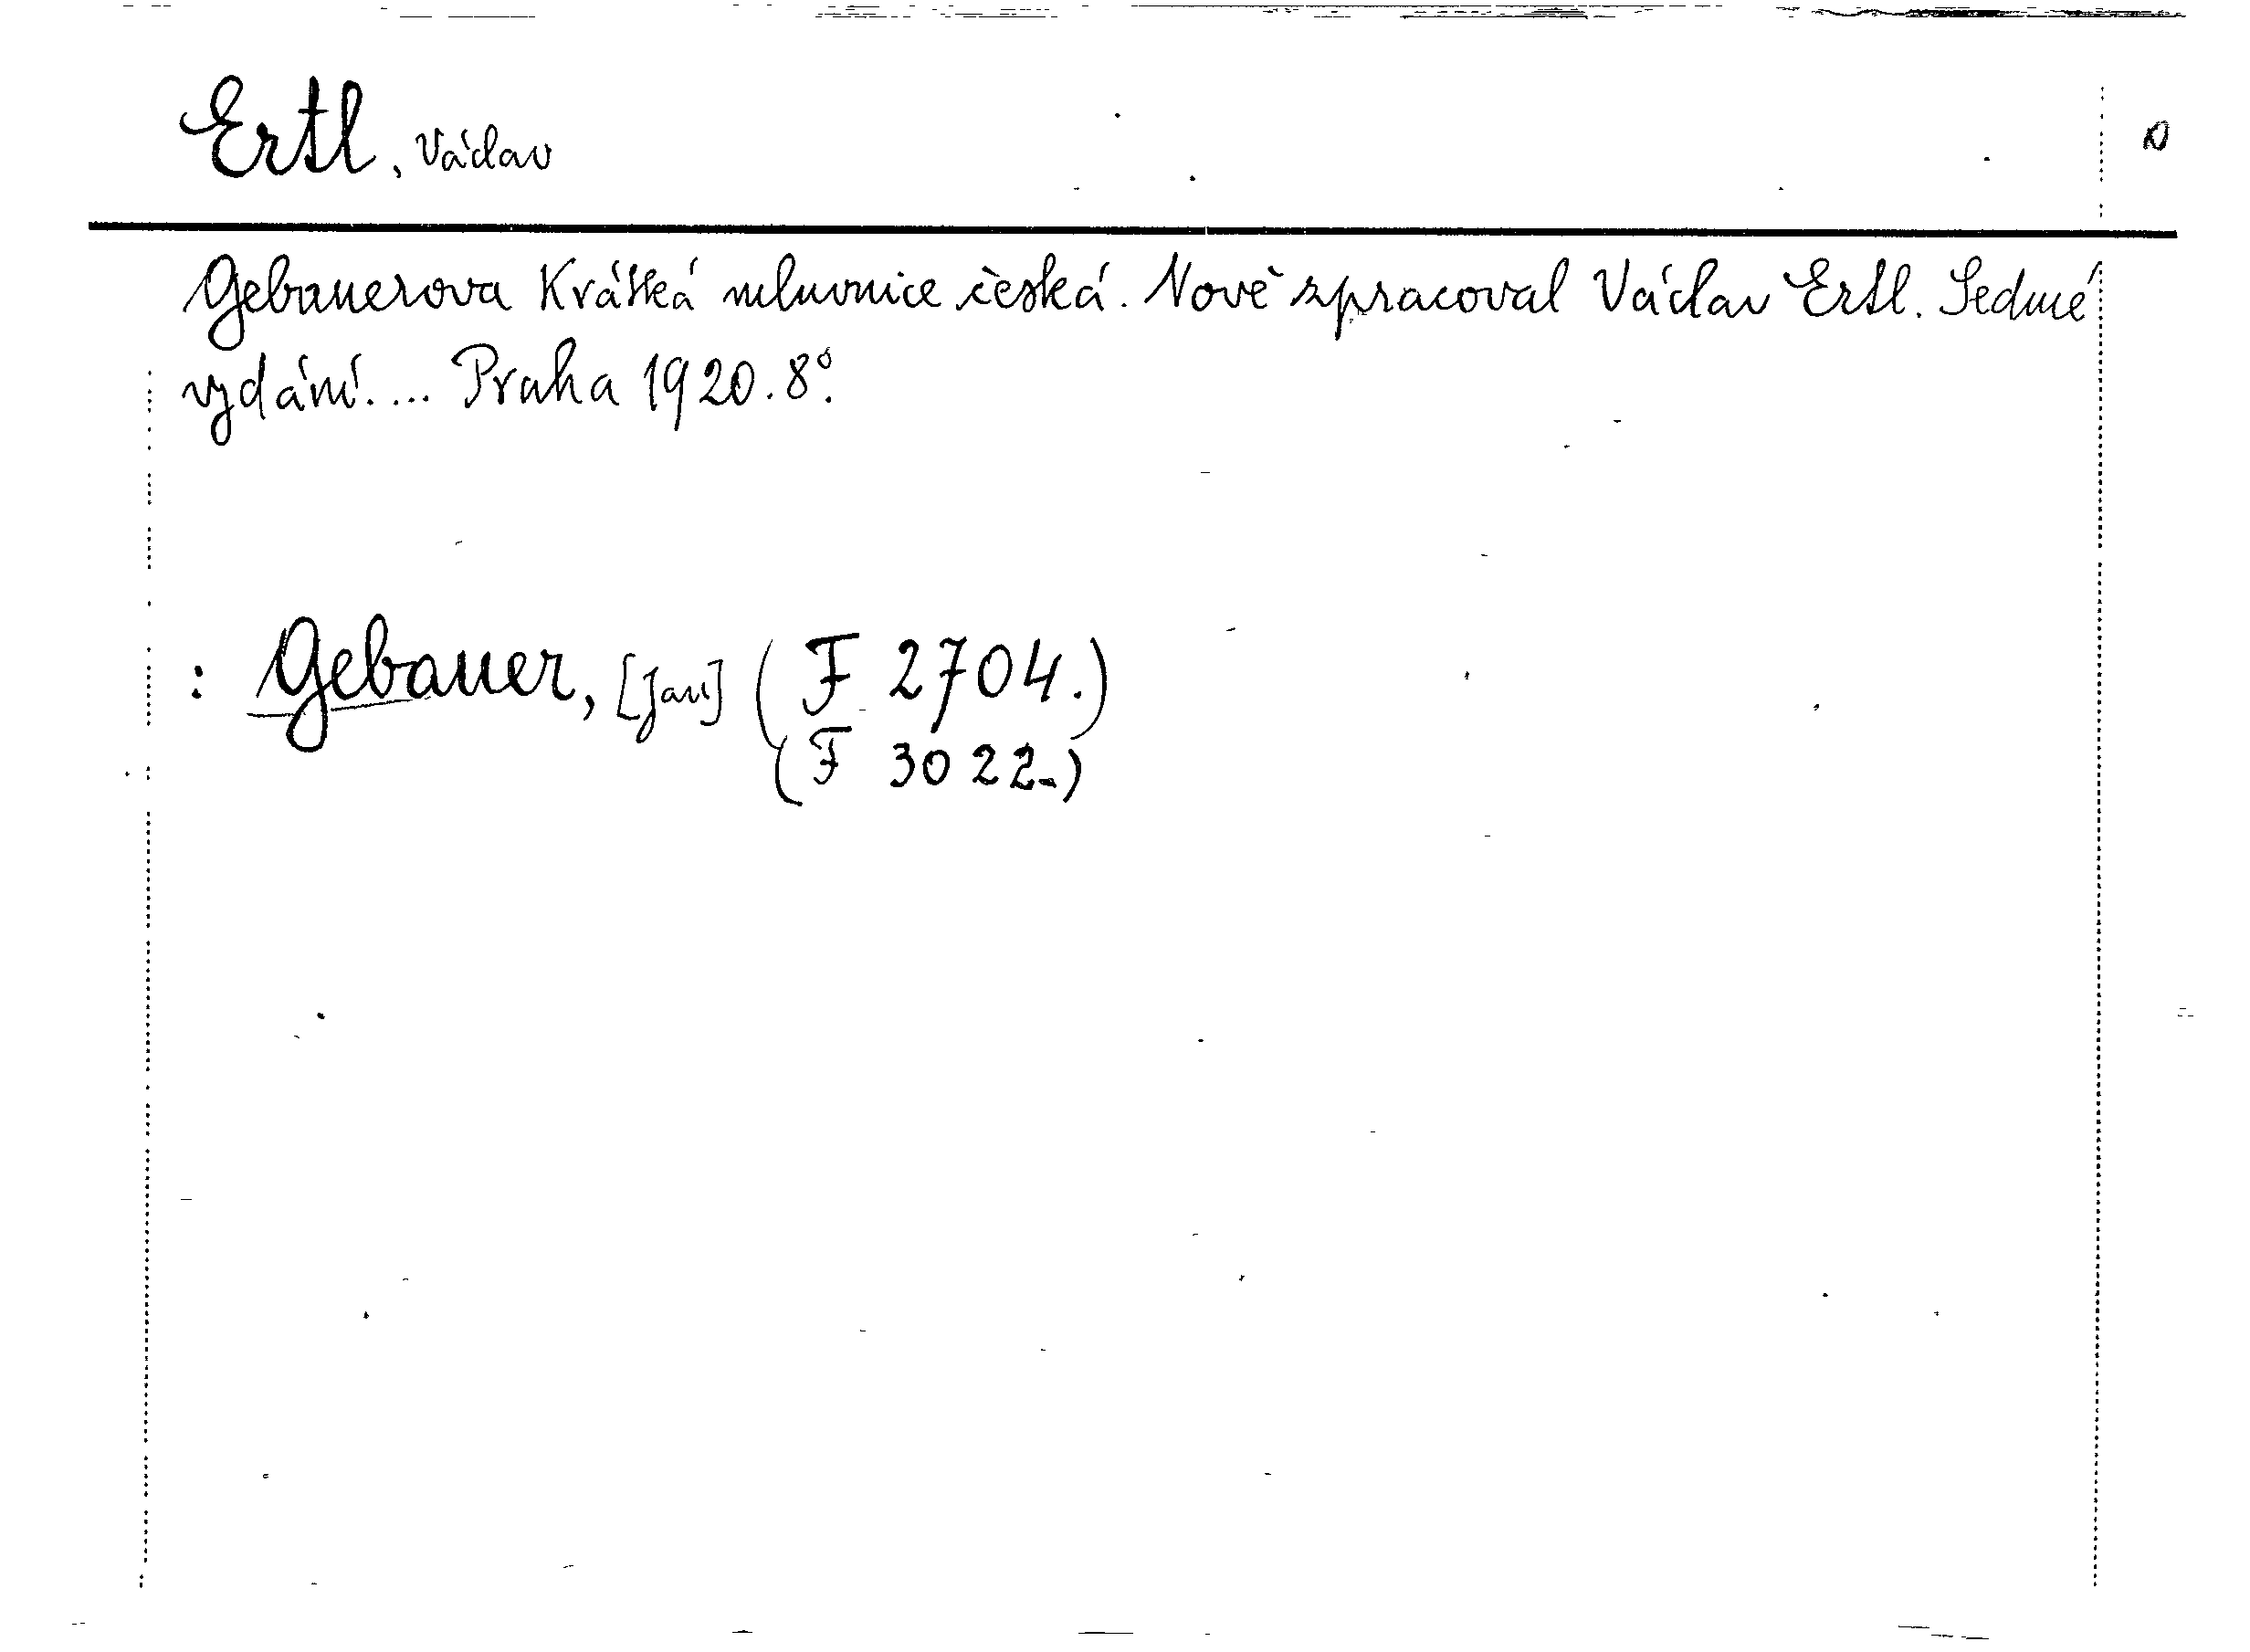 Ertl, Václav
Gebauerova Krátká mluvnice česká. Nově zpracoval Václav Ertl. Sedmé
vydání.... Praha 1920. 8°.
: Gebauer, [Jan] (F 2704.)
(F 3022.)